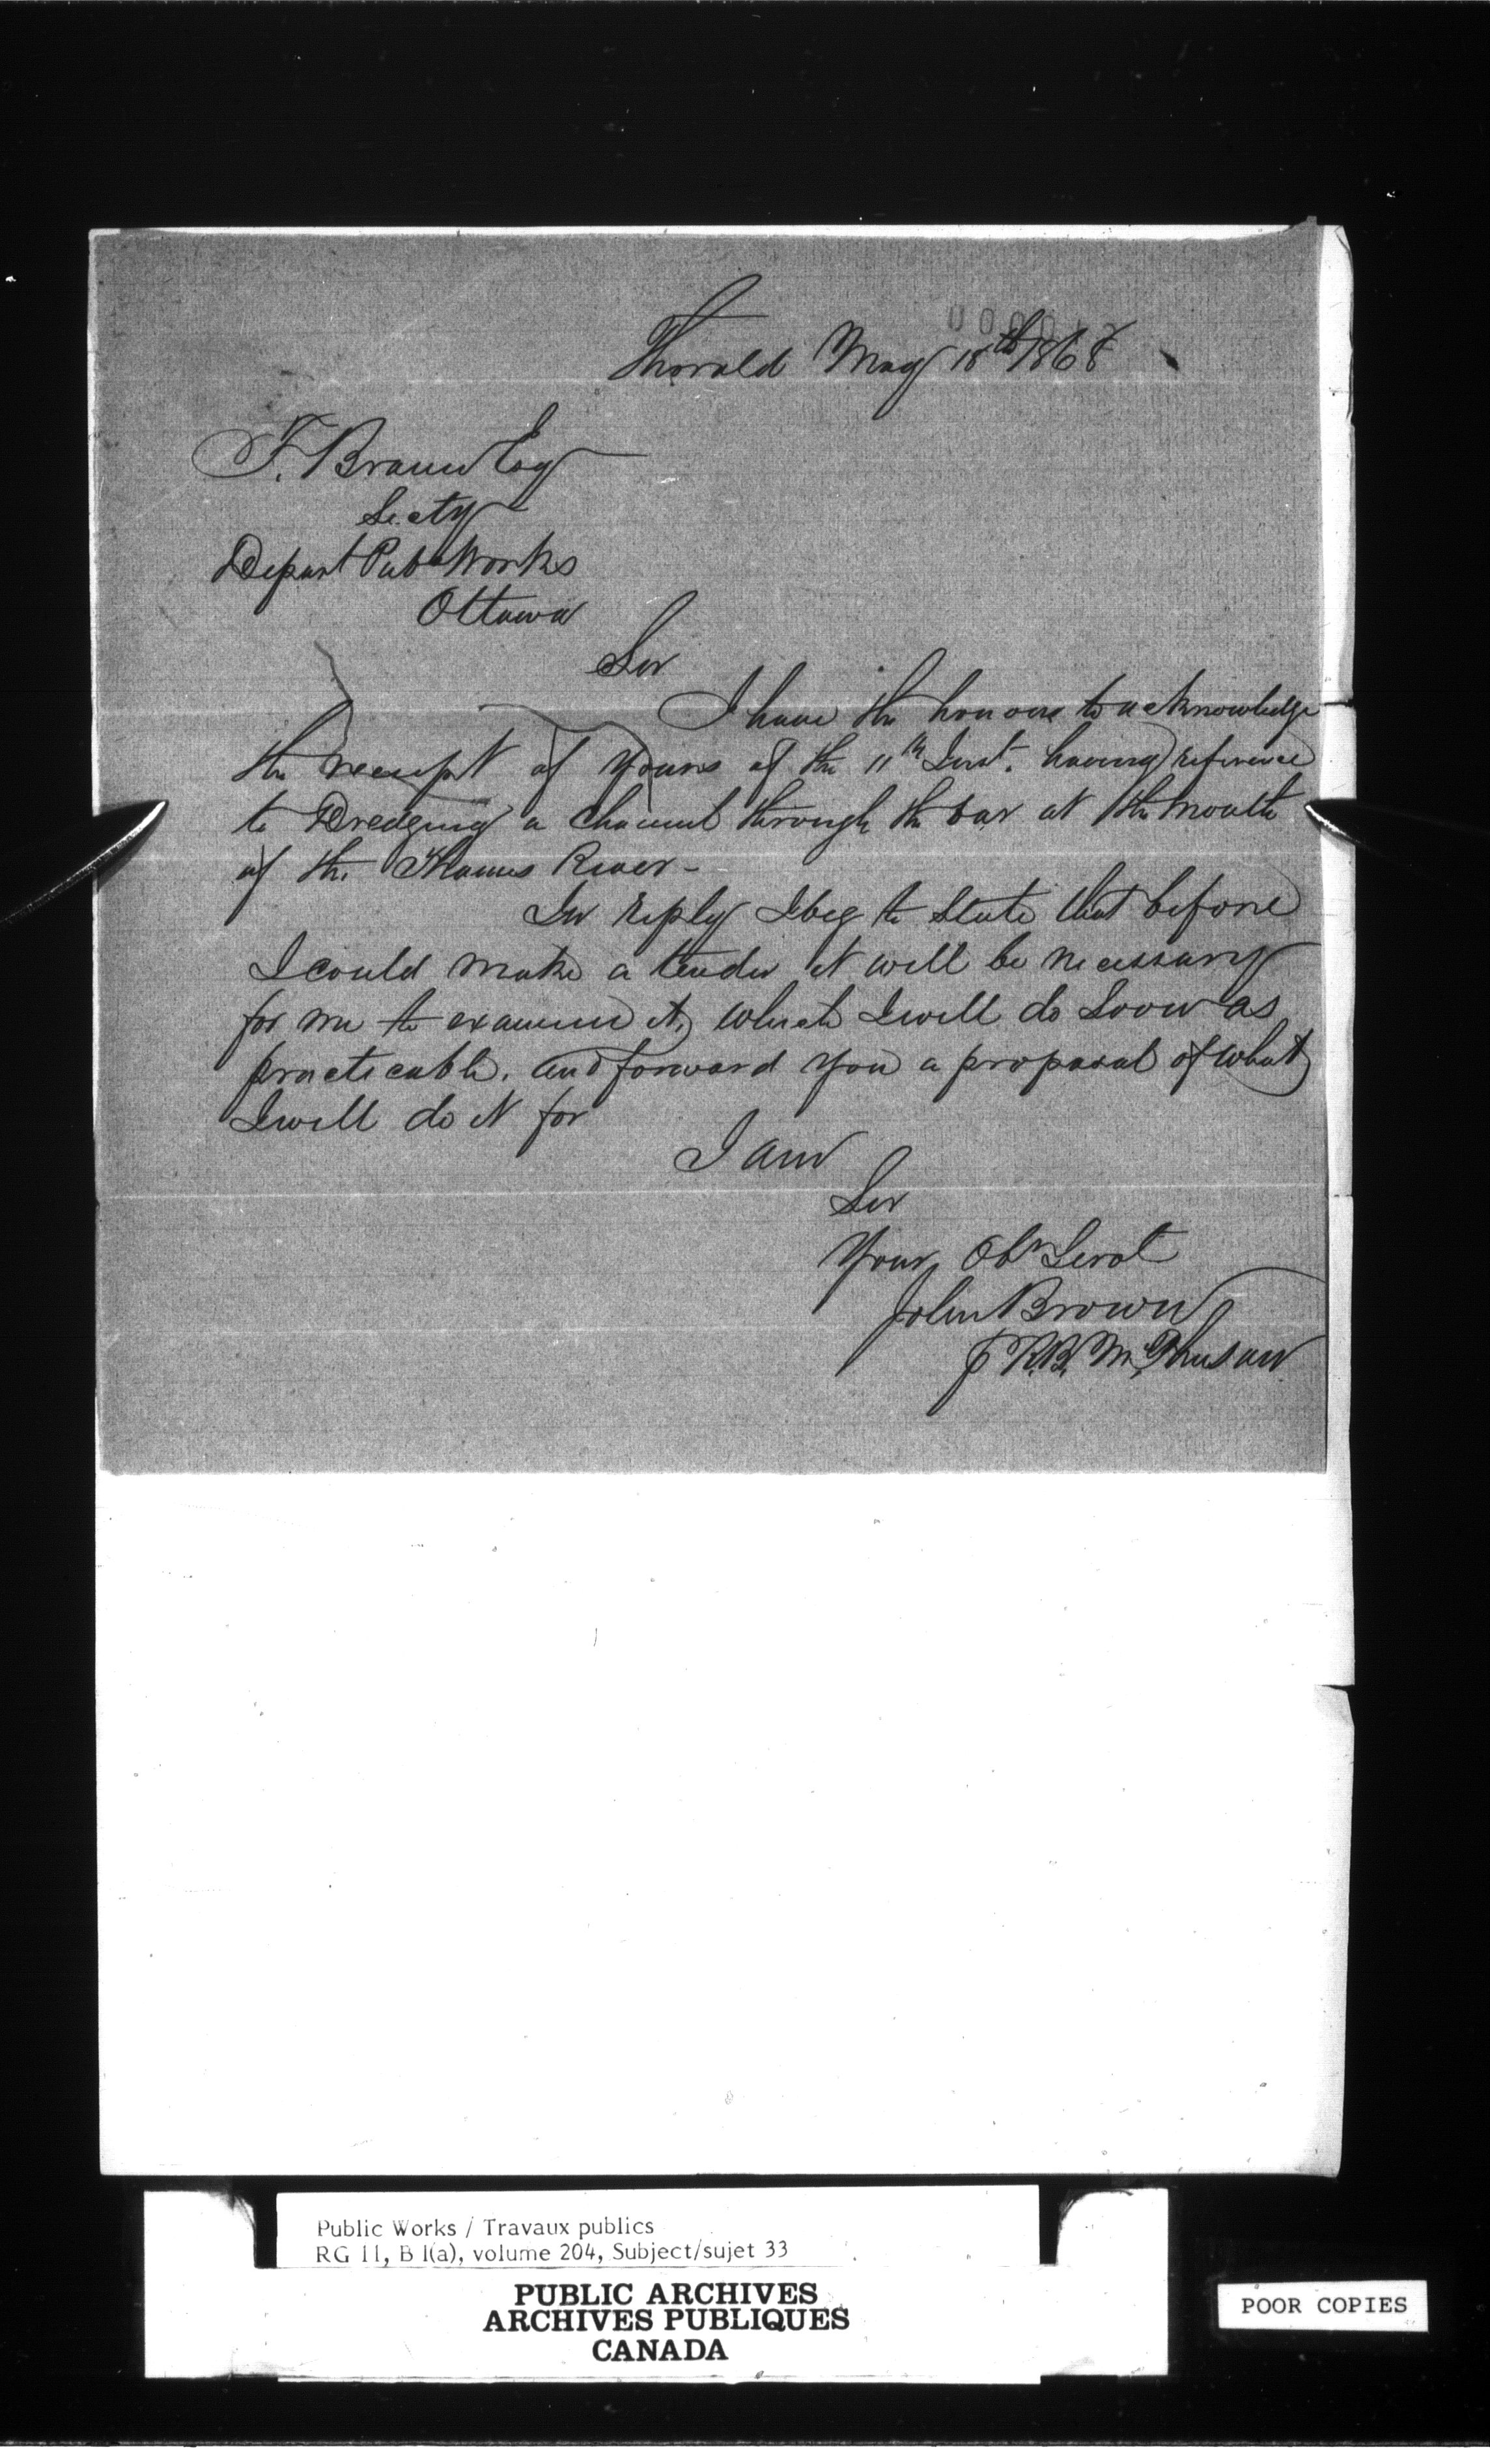 Thorold May 18th 1868
F. Braun Esq
Secty
Depart Pub Works
Ottawa
Sir
I have the honour to acknowledge
the receipt of yours of the 11th Inst. having reference
to Dredging a Channel through the bar at the mouth
of the Thames River -
In reply I beg to State that before
I could make a tender it will be necessary
for me to examine it, which I will do Soon as
practicable. and forward you a proposal of what
I will do it for
I am
Sir
Your Obt Servt
John Brown
R.B.
Public Works / Travaux publics
RG 11, B 1(a), volume 204, Subject/sujet 33
PUBLIC ARCHIVES
ARCHIVES PUBLIQUES
CANADA
POOR COPIES